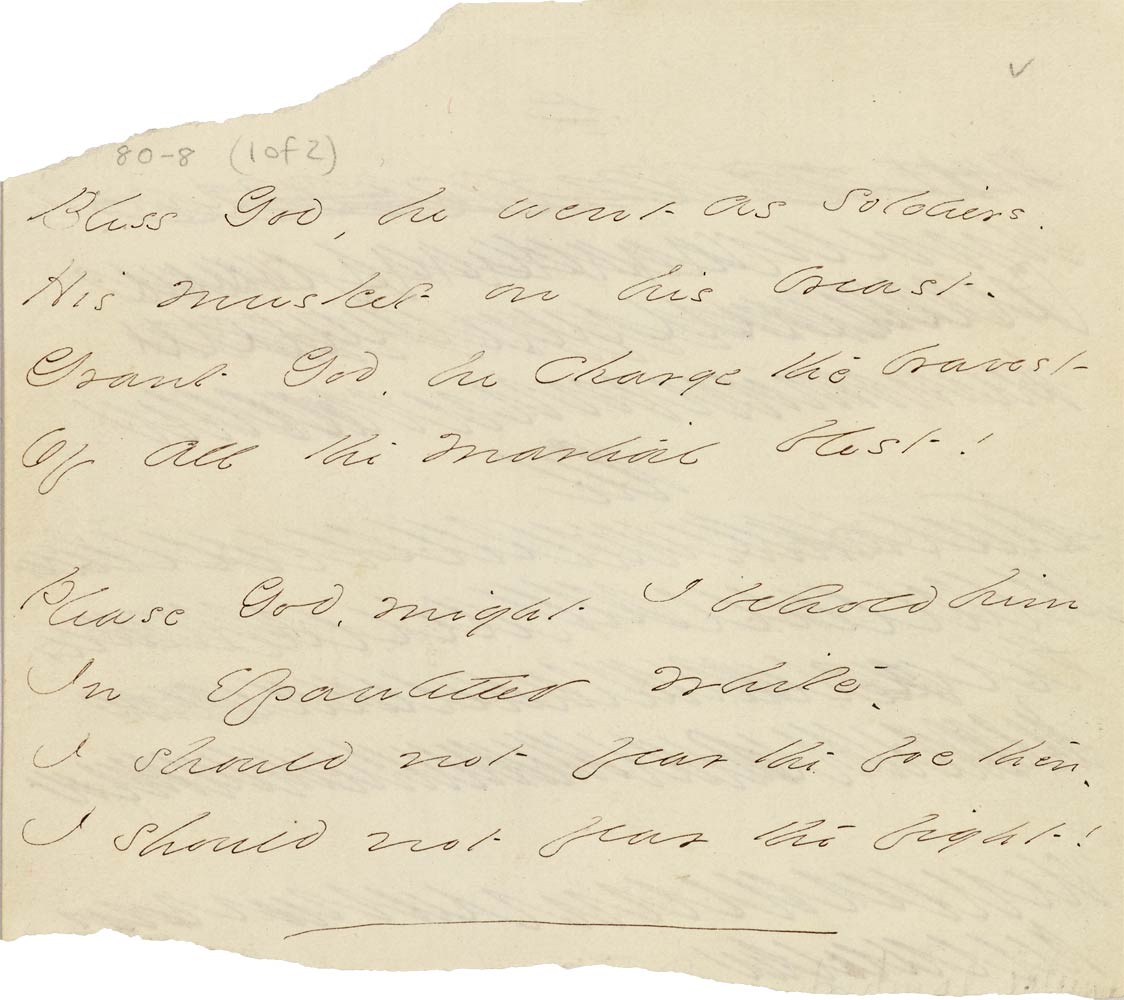 80-8 (1 of 2)
Bless God, he went as soldiers,
His musket on his breast -
Grant God, he charge the bravest -
Of all the martial blest!
Please God, might I behold him
In Epauletted white -
I should not fear the foe then -
I should not fear the fight!